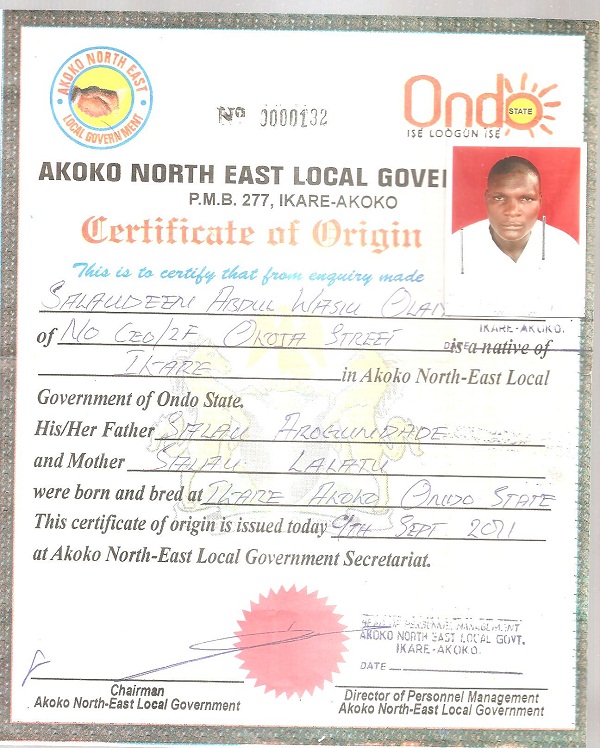 AKOKO NORTH EAST
LOCAL GOVERNMENT
No 0000132
Ondo
STATE
ISE LOOGUN ISE
AKOKO NORTH EAST LOCAL GOVE
P.M.B. 277, IKARE-AKOKO
Certificate of Origin
This is to certify that from enquiry made
SALAUDEEN ABDUL WASIU OLAN
IKARE-AKOKO.
of NO CEO/2F OKOJA STREET is a native of
DATE
IKARE in Akoko North-East Local
Government of Ondo State.
His/Her Father SALAU AROGUNDADE
and Mother SALAU LALATU
were born and bred at IKARE AKOKO ONDO STATE
This certificate of origin is issued today 9TH SEPT 2011
at Akoko North-East Local Government Secretariat.
HEAD OF PERSONNEL MANAGEMENT
AKOKO NORTH EAST LOCAL GOVT.
IKARE-AKOKO.
DATE
Chairman
Akoko North-East Local Government
Director of Personnel Management
Akoko North-East Local Government